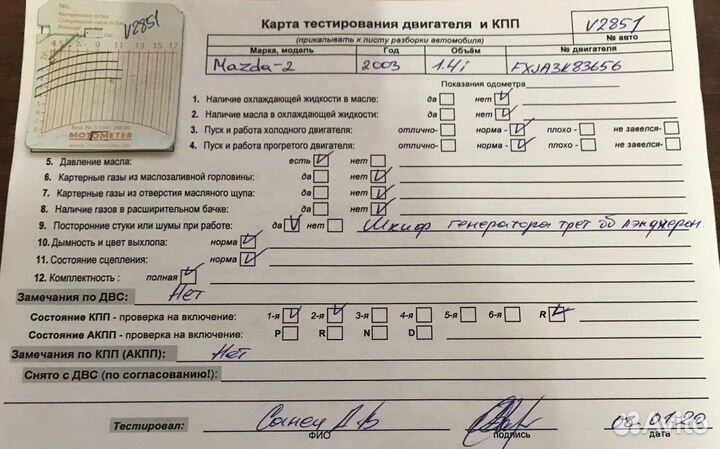 No.
Kompression in bar
Compression value in bar
Pression
V2851
MOTOMETER
Карта тестирования двигателя и КПП
(прикалывать к листу разборки автомобиля)
V2851
№ авто
Марка, модель Год Объём № двигателя
Mazda-2 2003 1.4i FXJA3K83656
Показания одометра
1. Наличие охлаждающей жидкости в масле: да нет
2. Наличие масла в охлаждающей жидкости: да нет
3. Пуск и работа холодного двигателя: отлично- норма - плохо - не завелся-
4. Пуск и работа прогретого двигателя: отлично- норма - плохо - не завелся-
5. Давление масла: есть нет
6. Картерные газы из маслозаливной горловины: да нет
7. Картерные газы из отверстия масляного щупа: да нет
8. Наличие газов в расширительном бачке: да нет
9. Посторонние стуки или шумы при работе: да нет Шкиф генератора трет об лэнджерон.
10. Дымность и цвет выхлопа: норма
11. Состояние сцепления: норма
12. Комплектность : полная
Замечания по ДВС: Нет
Состояние КПП - проверка на включение: 1-я 2-я 3-я 4-я 5-я 6-я R
Состояние АКПП - проверка на включение: P R N D
Замечания по КПП (АКПП): Нет
Снято с ДВС (по согласованию!):
Тестировал: 08.01.20
ФИО подпись дата
Avito